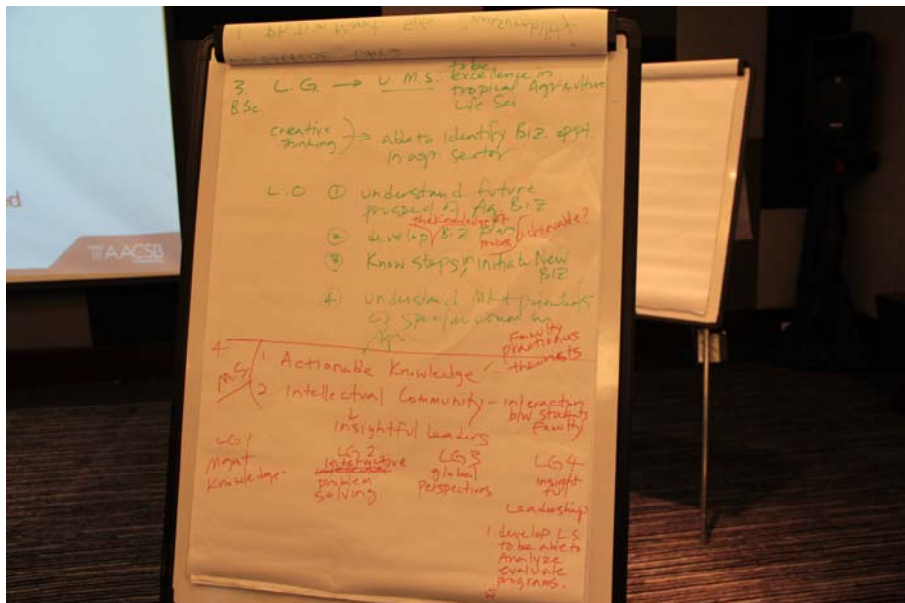 ed
AACSB
3. L.G. → U.M.S. to be
B.Sc. excellence in
tropical Agriculture
Life Sci
Creative
Thinking → able to identify BIZ. oppt.
in agr. sector
L.O ① understand future
prospect of Ag BIZ
the knowledge of
② develop BIZ plan process achievable?
③ Know steps in initiate New
BIZ
④ understand MKt potentials
of
Faculty
practioners
theorists
4.
M.S
1. Actionable Knowledge
2. Intellectual Community - interaction
b/w students
Faculty
↓
insightful leaders
LG.1
Mgmt
Knowledge-
LG 2
interactive
problem
solving
LG3
global
Perspectives
LG4
insight
ful
Leadership
1. develop L.S.
to be able to
Analyze
evaluate
programs.